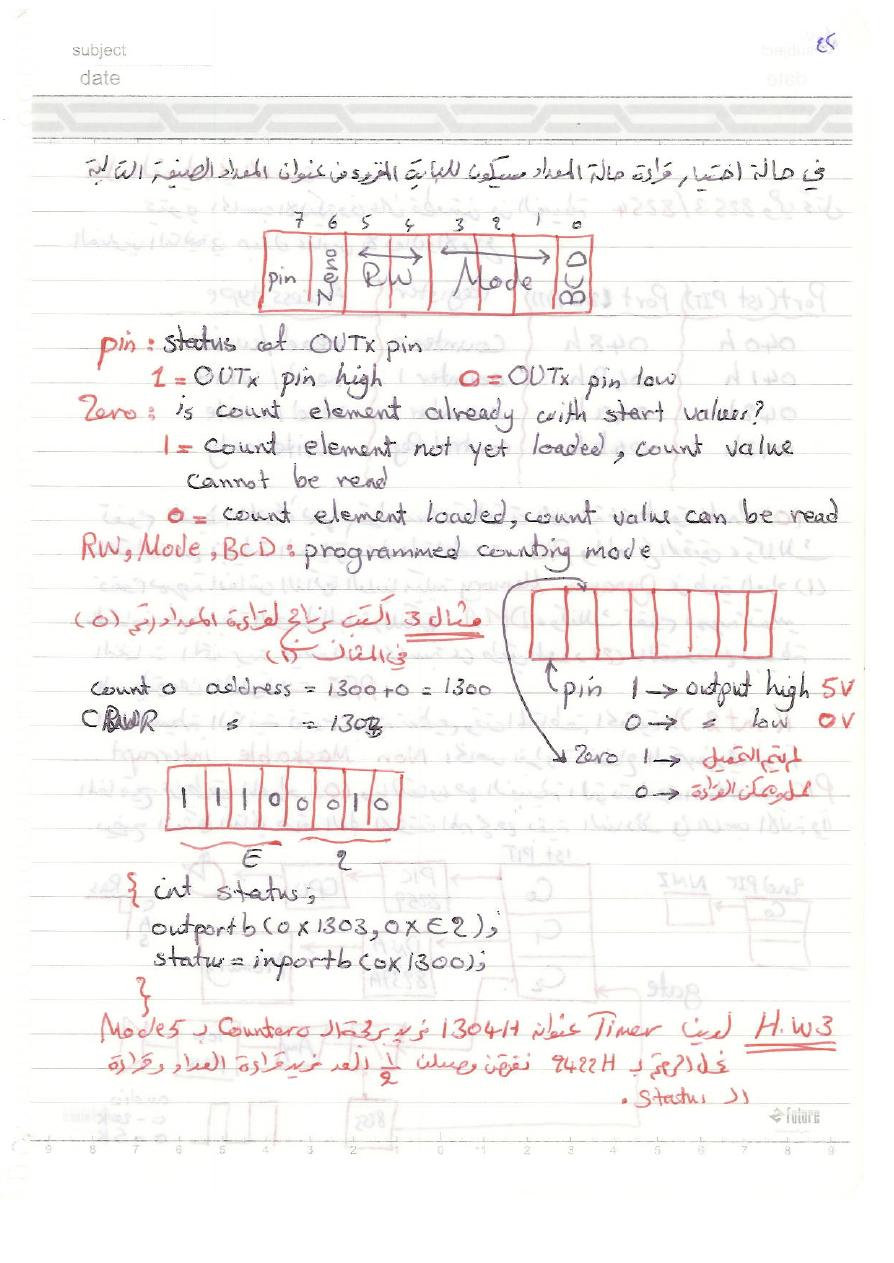 subject
date
٤٥
في حالة اختيار قراءة حالة المعداد سيكون للبايت المقروء من عنوان المعداد الصيغة التالية
7 6 5 4 3 2 1 0
pin Zero RW Mode BCD
pin : status of OUTx pin
1 = OUTx pin high 0 = OUTx pin low
Zero : is count element already with start values?
1 = count element not yet loaded, count value
cannot be read
0 = count element loaded, count value can be read
RW, Mode, BCD : programmed counting mode
مثال 3 اكتب برنامج لقراءة المعداد رقم (0)
في المثال (1)
count 0 address = 1300 + 0 = 1300
= = 1303
pin 1 → output high 5V
0 → = low 0V
Zero 1 → لم يتم التحميل
0 → حمل ويمكن القراءة
1 1 1 0 0 0 1 0
E 2
{ int status;
outportb(0x1303, 0xE2);
status = inportb(0x1300);
}
H.W3 لدينا Timer عنوانه 1304H نريد برمجة الـ Counter0 بـ Mode5
بـ 9422H نفرض وصلنا 1/2 العد نريد قراءة العداد وقراءة
الـ Status.
Future
9 8 7 6 5 4 3 2 1 0 1 2 3 4 5 6 7 8 9